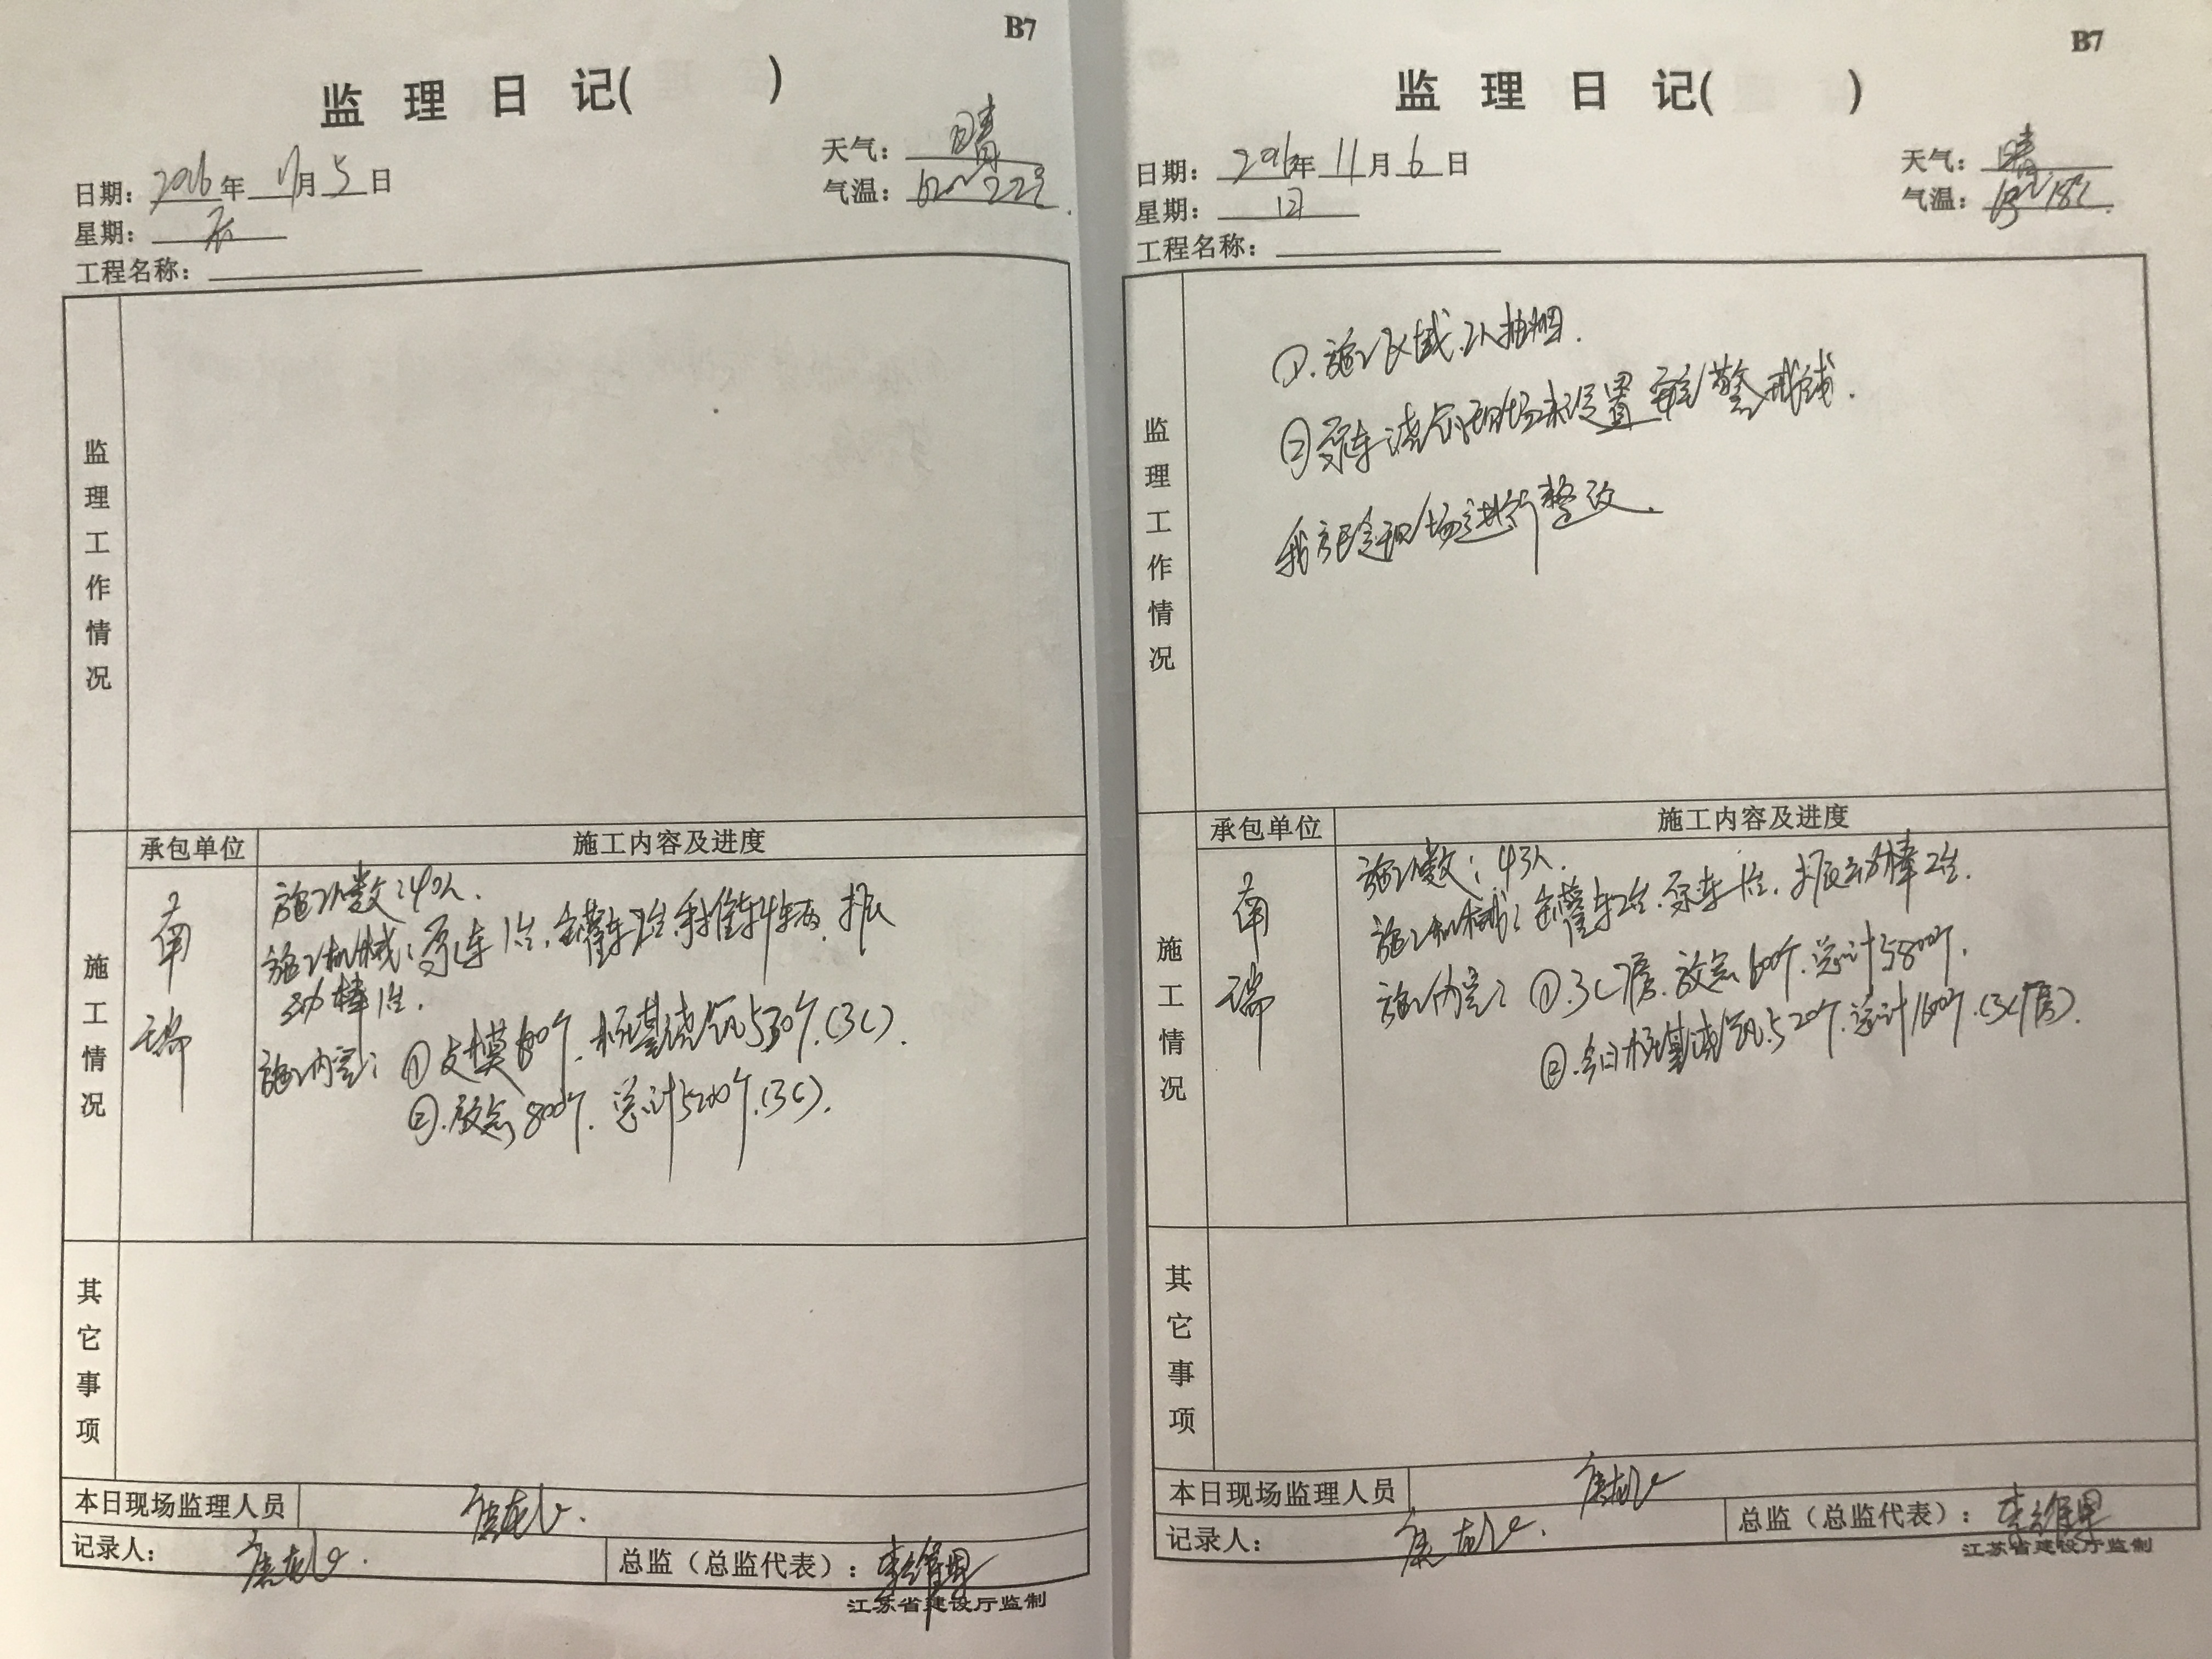 B7
监理日记( )
日期：2016年11月5日
天气：晴
星期：六
气温：12~22℃
工程名称：
监理工作情况
承包单位
施工内容及进度
施工情况
南瑞
施工人数：40人.
施工机械：泵车1台.仓罐车2台.手推车4辆.振
动棒1台.
施工内容：①支模 桩基浇筑530个.(3C).
②.放点800个.总计5200个.(3C).
其它事项
本日现场监理人员
记录人：
总监（总监代表）：李维
江苏省建设厅监制
B7
监理日记( )
日期：2016年11月6日
天气：晴
星期：日
气温：13~18℃.
工程名称：
监理工作情况
①.施工区域.工人抽烟.
②泵车浇筑现场未设置安全警戒线.
我方已令现场进行整改.
承包单位
施工内容及进度
施工情况
南瑞
施工人数：43人.
施工机械：仓罐车2台.泵车1台.振动棒2台.
施工内容：①.3C厂房.放点600个.总计5800个.
②.今日桩基浇筑.520个.总计1600个.(3C厂房).
其它事项
本日现场监理人员
记录人：
总监（总监代表）：李维
江苏省建设厅监制